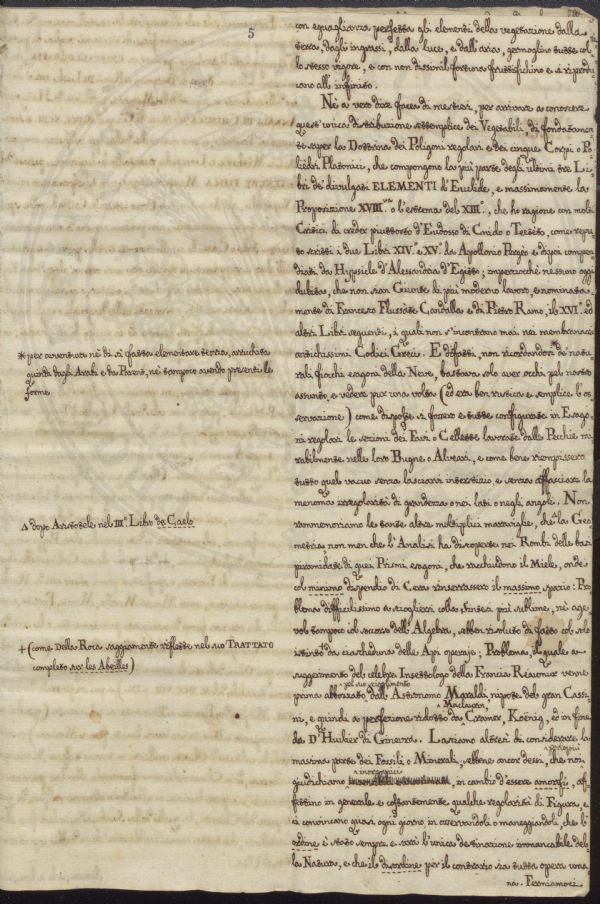 5
con eguaglianza perfetta gli elementi della vegetazione dalla
terra, dagli ingrassi, dalla luce, e dall'aria, germoglino tutte col
lo stesso vigore, e con non dissimil fortuna fruttifichino e si riprodu
cano all'infinito.
Nè a vero dire facea di mestieri, per arrivare a conoscere
quest'unica distribuzione settemplice dei Vegetabili, di fondatamen
te saper la Dottrina dei Poligoni regolari e dei cinque Corpi o Po
liedri Platonici, che compongono la più parte degli ultimi tre Li
bri de' divulgati ELEMENTI d'Euclide, e massimamente la
Proposizione XVIII.ma o l'estrema del XIII.o, che ho ragione con molti
Critici di creder piuttosto d'Eudosso di Cnido o Teeteto, come repu
to scritti i due Libri XIV.o e XV.o da Apollonio Pergèo e dipoi compen
diati da Hypsicle d'Alessandria d'Egitto; imperciocchè nessuno oggi
dubita, che non sian Giunte di più moderno lavoro, e nominata
mente di Francesco Flussate Candalla e di Pietro Ramo, il XVI.o ed
altri Libri seguenti, i quali non s'incontrano mai nei membranacei
antichissimi Codici Greci. E difatti, non ricordandosi de' natu
rali fiocchi esagoni della Neve, bastava solo aver occhi pel nostro
assunto, e vedere pur una volta (ed era ben rustica e semplice l'os
servazione) come disposte si fossero e tutte configurate in Esago
ni regolari le sezioni dei Favi o Cellette lavorate dalle Pecchie mi
rabilmente nelle loro Bugne o Alveari, e come bene riempissero
tutto quel vacuo senza lasciarvi interstizio, e senza affacciare la
menoma irregolarità di grandezza o nei lati o negli angoli. Non
rammemoriamo le tante altre multiplici maraviglie, che la Geo
metria, non men che l'Analisi ha discoperte nei Rombi delle basi
piramidate di quei Prismi esagoni, che racchiudono il Miele, onde
col minimo dispendio di Cera rinserrassero il massimo spazio: Pro
blema difficilissimo a sciogliersi colla Sintesi più sublime, nè age
vol tampoco col soccorso dell'Algebra, sebben risoluto di fatto col solo
istinto da ciascheduna delle Api operaje; Problema, il quale a
suggerimento del celebre Insettologo della Francia Réaumur venne
pel suo scioglimento
prima abbozzato dall'Astronomo Maraldi nipote del gran Cassi
Maclaurin,
ni, e quindi a perfezione ridotto da Cramer, Koënig, ed in fine
da D.r Huilier di Ginevra. Lasciamo altresì di considerare la
massima parte dei Fossili o Minerali, sebbene ancor dessi, che non
inorganici
giudichiamo, in cambio d'essere amorfi, af
fettino in generale e costantemente qualche regolarità di Figura, e
ci convincano quasi ogni giorno, in osservandoli o maneggiandoli, che l'
ordine è stato sempre e sarà l'unica destinazione immancabile del
la Natura, e che il disordine per il contrario sia tutta opera uma
na. Fermiamoci
* per avventura nè di sì fatta elementare teoria, arricchita
quinta dagli Arabi e da Parent, nè tampoco avendo presenti le
forme
Δ dopo Aristotele nel III.o Libro de Caelo
+ (come Della Rocca saggiamente riflette nel suo TRATTATO
completo sur les Abeilles)